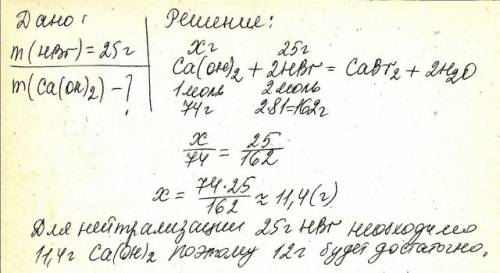 Дано:
m(HBr)=25г
m(Ca(OH)₂)-?
Решение:
xг 25г
Ca(OH)₂ + 2HBr = CaBr₂ + 2H₂O
1моль 2моль
74г 2·81=162г
x/74 = 25/162
x = 74·25/162 ≈ 11,4(г)
Для нейтрализации 25г HBr необходимо
11,4г Ca(OH)₂ поэтому 12г будет достаточно.